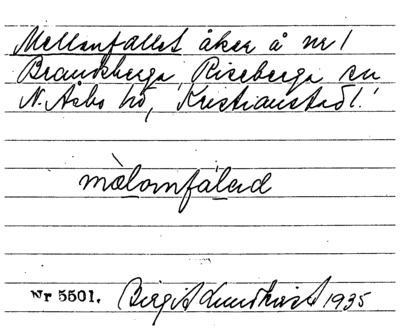 Mellanfallet åker å nr 1
Brandeberga, Riseberga sn
N. Åsbo hd, Kristianstad l.
mèlomfálad
Nr 5501. Birgit Lundkvist 1935